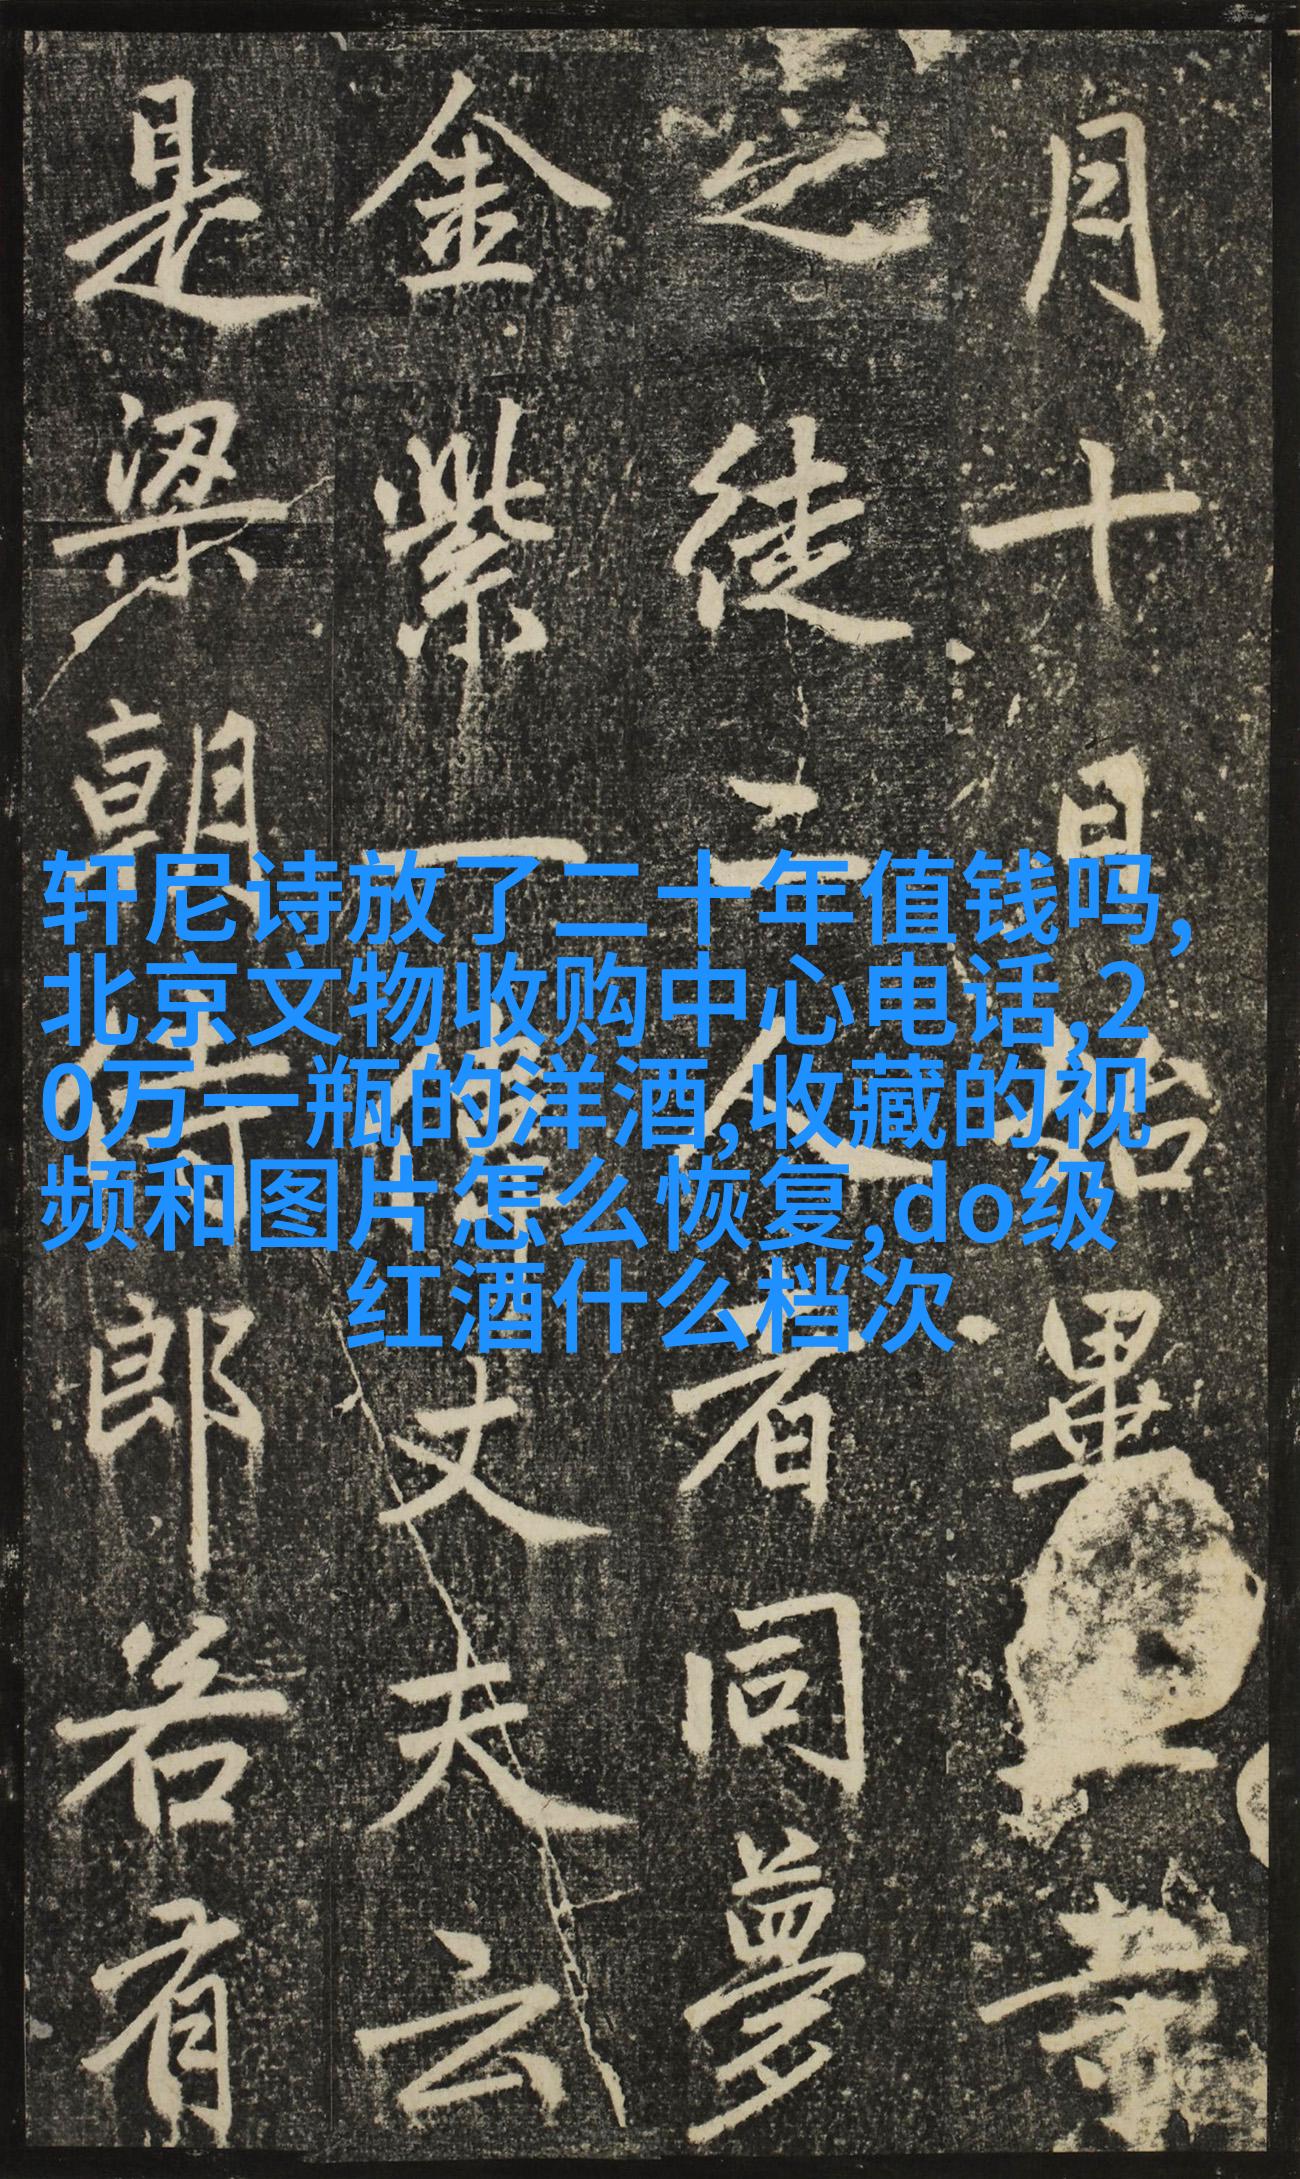 月十月始畢
之徒二人者同夢
金紫一偉丈夫云
是梁朝侍郎若有
轩尼诗放了二十年值钱吗,
北京文物收购中心电话,2
0万一瓶的洋酒,收藏的视
频和图片怎么恢复,do级
红酒什么档次